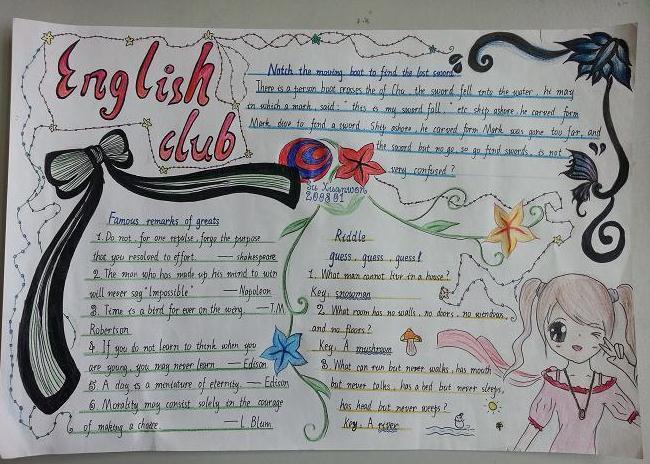 English
club
Notch the moving boat to find the lost sword
There is a person boat crosses the of Chu, the sword fell into the water, he may
in which a mark, said: "this is my sword fall," etc ship ashore, he carved form
Mark dive to find a sword. Ship ashore, he carved form Mark was gone too far, and
the sword but no go, so go find swords, is not
very confused?
Su Xuanwen
200801
Famous remarks of greats
1. Do not, for one repulse, forgo the purpose
that you resolved to effort. —— shakespeare
2. The man who has made up his mind to win
will never say "Impossible" —— Napoleon
3. Time is a bird for ever on the wing. —— T.M
Robertson
4. If you do not learn to think when you
are young, you may never learn. —— Edison
5. A day is a miniature of eternity. —— Edison
6. Morality may consist solely in the courage
of making a choice. —— L. Blum
Riddle
guess, guess, guess!
1. What man cannot live in a house?
Key: snowman
2. What room has no walls, no doors, no windows,
and no floors?
Key: A mushroom
3. What can run but never walks, has mouth
but never talks, has a bed but never sleeps,
has head but never weeps?
Key: A river